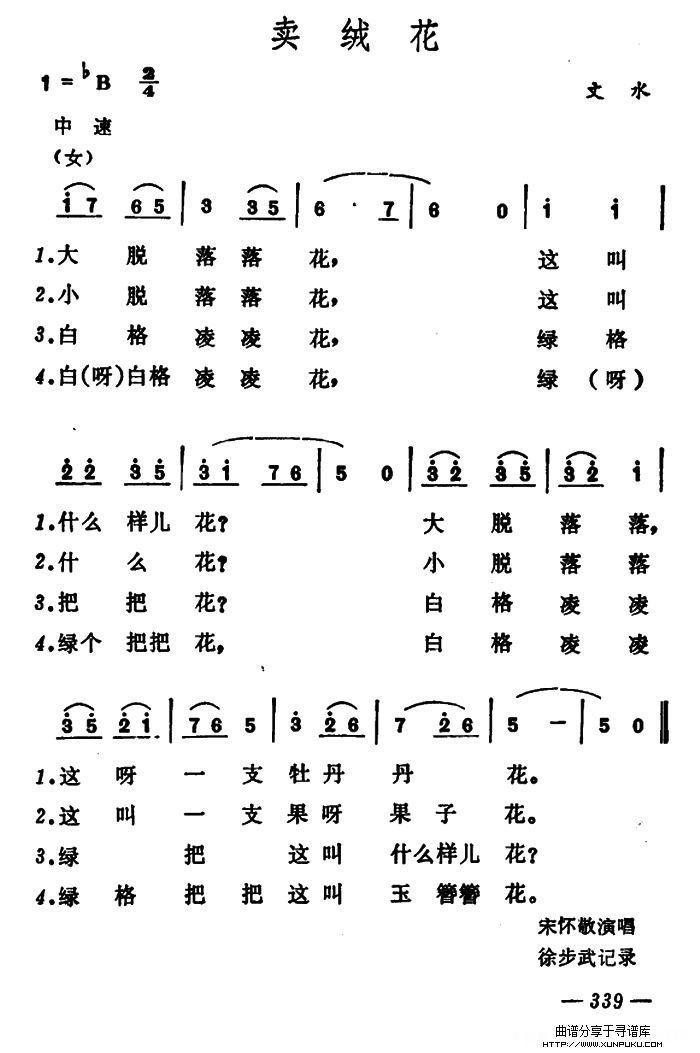 卖绒花
1=♭B 2/4
文水
中速
(女)
i̲7̲ 6̲5̲ | 3 3̲5̲ | 6 · 7̲ | 6 0 | i i |
1.大 脱 落 落 花, 这 叫
2.小 脱 落 落 花, 这 叫
3.白 格 凌 凌 花, 绿 格
4.白(呀)白格 凌 凌 花, 绿 (呀)
2̲̇2̲̇ 3̲̇5̲̇ | 3̲̇i̲ 7̲6̲ | 5 0 | 3̲̇2̲̇ 3̲̇5̲̇ | 3̲̇2̲̇ i |
1.什么 样儿 花? 大 脱 落 落,
2.什 么 花? 小 脱 落 落
3.把 把 花? 白 格 凌 凌
4.绿个 把把 花, 白 格 凌 凌
3̲̇5̲̇ 2̲̇i̲ | 7̲6̲ 5 | 3̇ 2̲̇6̲ | 7 2̲̇6̲ | 5 — | 5 0 ‖
1.这 呀 一 支 牡 丹 丹 花。
2.这 叫 一 支 果 呀 果 子 花。
3.绿 把 这 叫 什么样儿 花?
4.绿 格 把 把 这 叫 玉 簪簪 花。
宋怀敬演唱
徐步武记录
— 339 —
曲谱分享于寻谱库
HTTP://WWW.XUNPUKU.COM